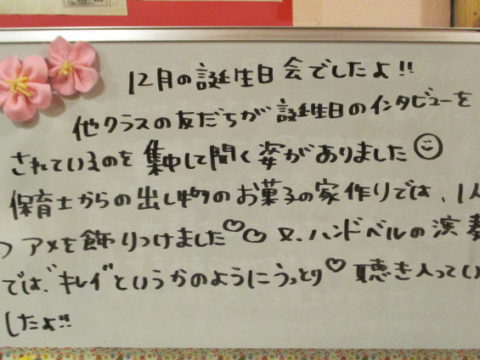 12月の誕生日会でしたよ!!
他クラスの友だちが誕生日のインタビューを
されているのを集中して聞く姿がありました☺
保育士からの出し物のお菓子の家作りでは、1人
つアメを飾りつけました♡♡又、ハンドベルの演奏
では、"キレイ"というかのようにうっとり♡聴き入ってい
したよ!!